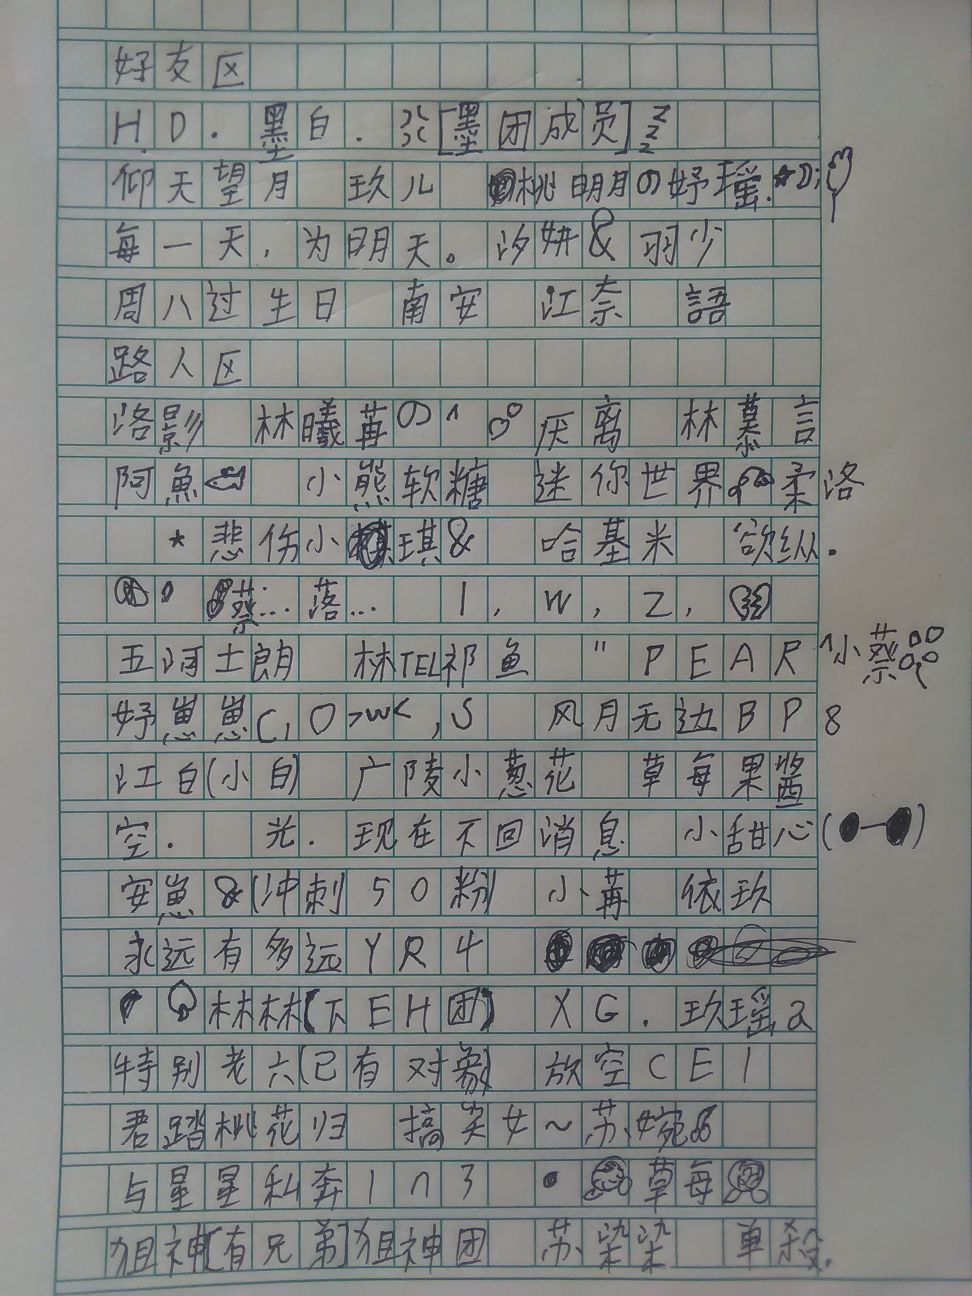 好友区
H.D. 墨白. ※[墨团成员]zzz
仰天望月 玖儿 桃明月の妤瑶.★D;
每一天,为明天。汐妍& 羽少
周八过生日 南安 江奈 語
路人区
洛影 林曦苒の^ 厌离 林慕言
阿魚 小熊软糖 迷你世界 柔洛
★悲伤小琪& 哈基米 欲纵.
蔡...落... 1,W,Z,
五河士朗 林TEL祁鱼 "PEAR ^小蔡
妤崽崽C,O>w<,S 风月无边BP8
江白(小白) 广陵小葱花 草每果醬
空. 光. 现在不回消息 小甜心(●—●)
安崽&(冲刺50粉) 小苒 依玖
永远有多远YR4
林林(下EH团) XG.玖瑶2
特别老六(已有对象) 放空CE1
君踏桃花归 搞笑女~苏婉
与星星私奔1n3 草每
狙神[有兄弟]狙神团 苏染染 单殺.